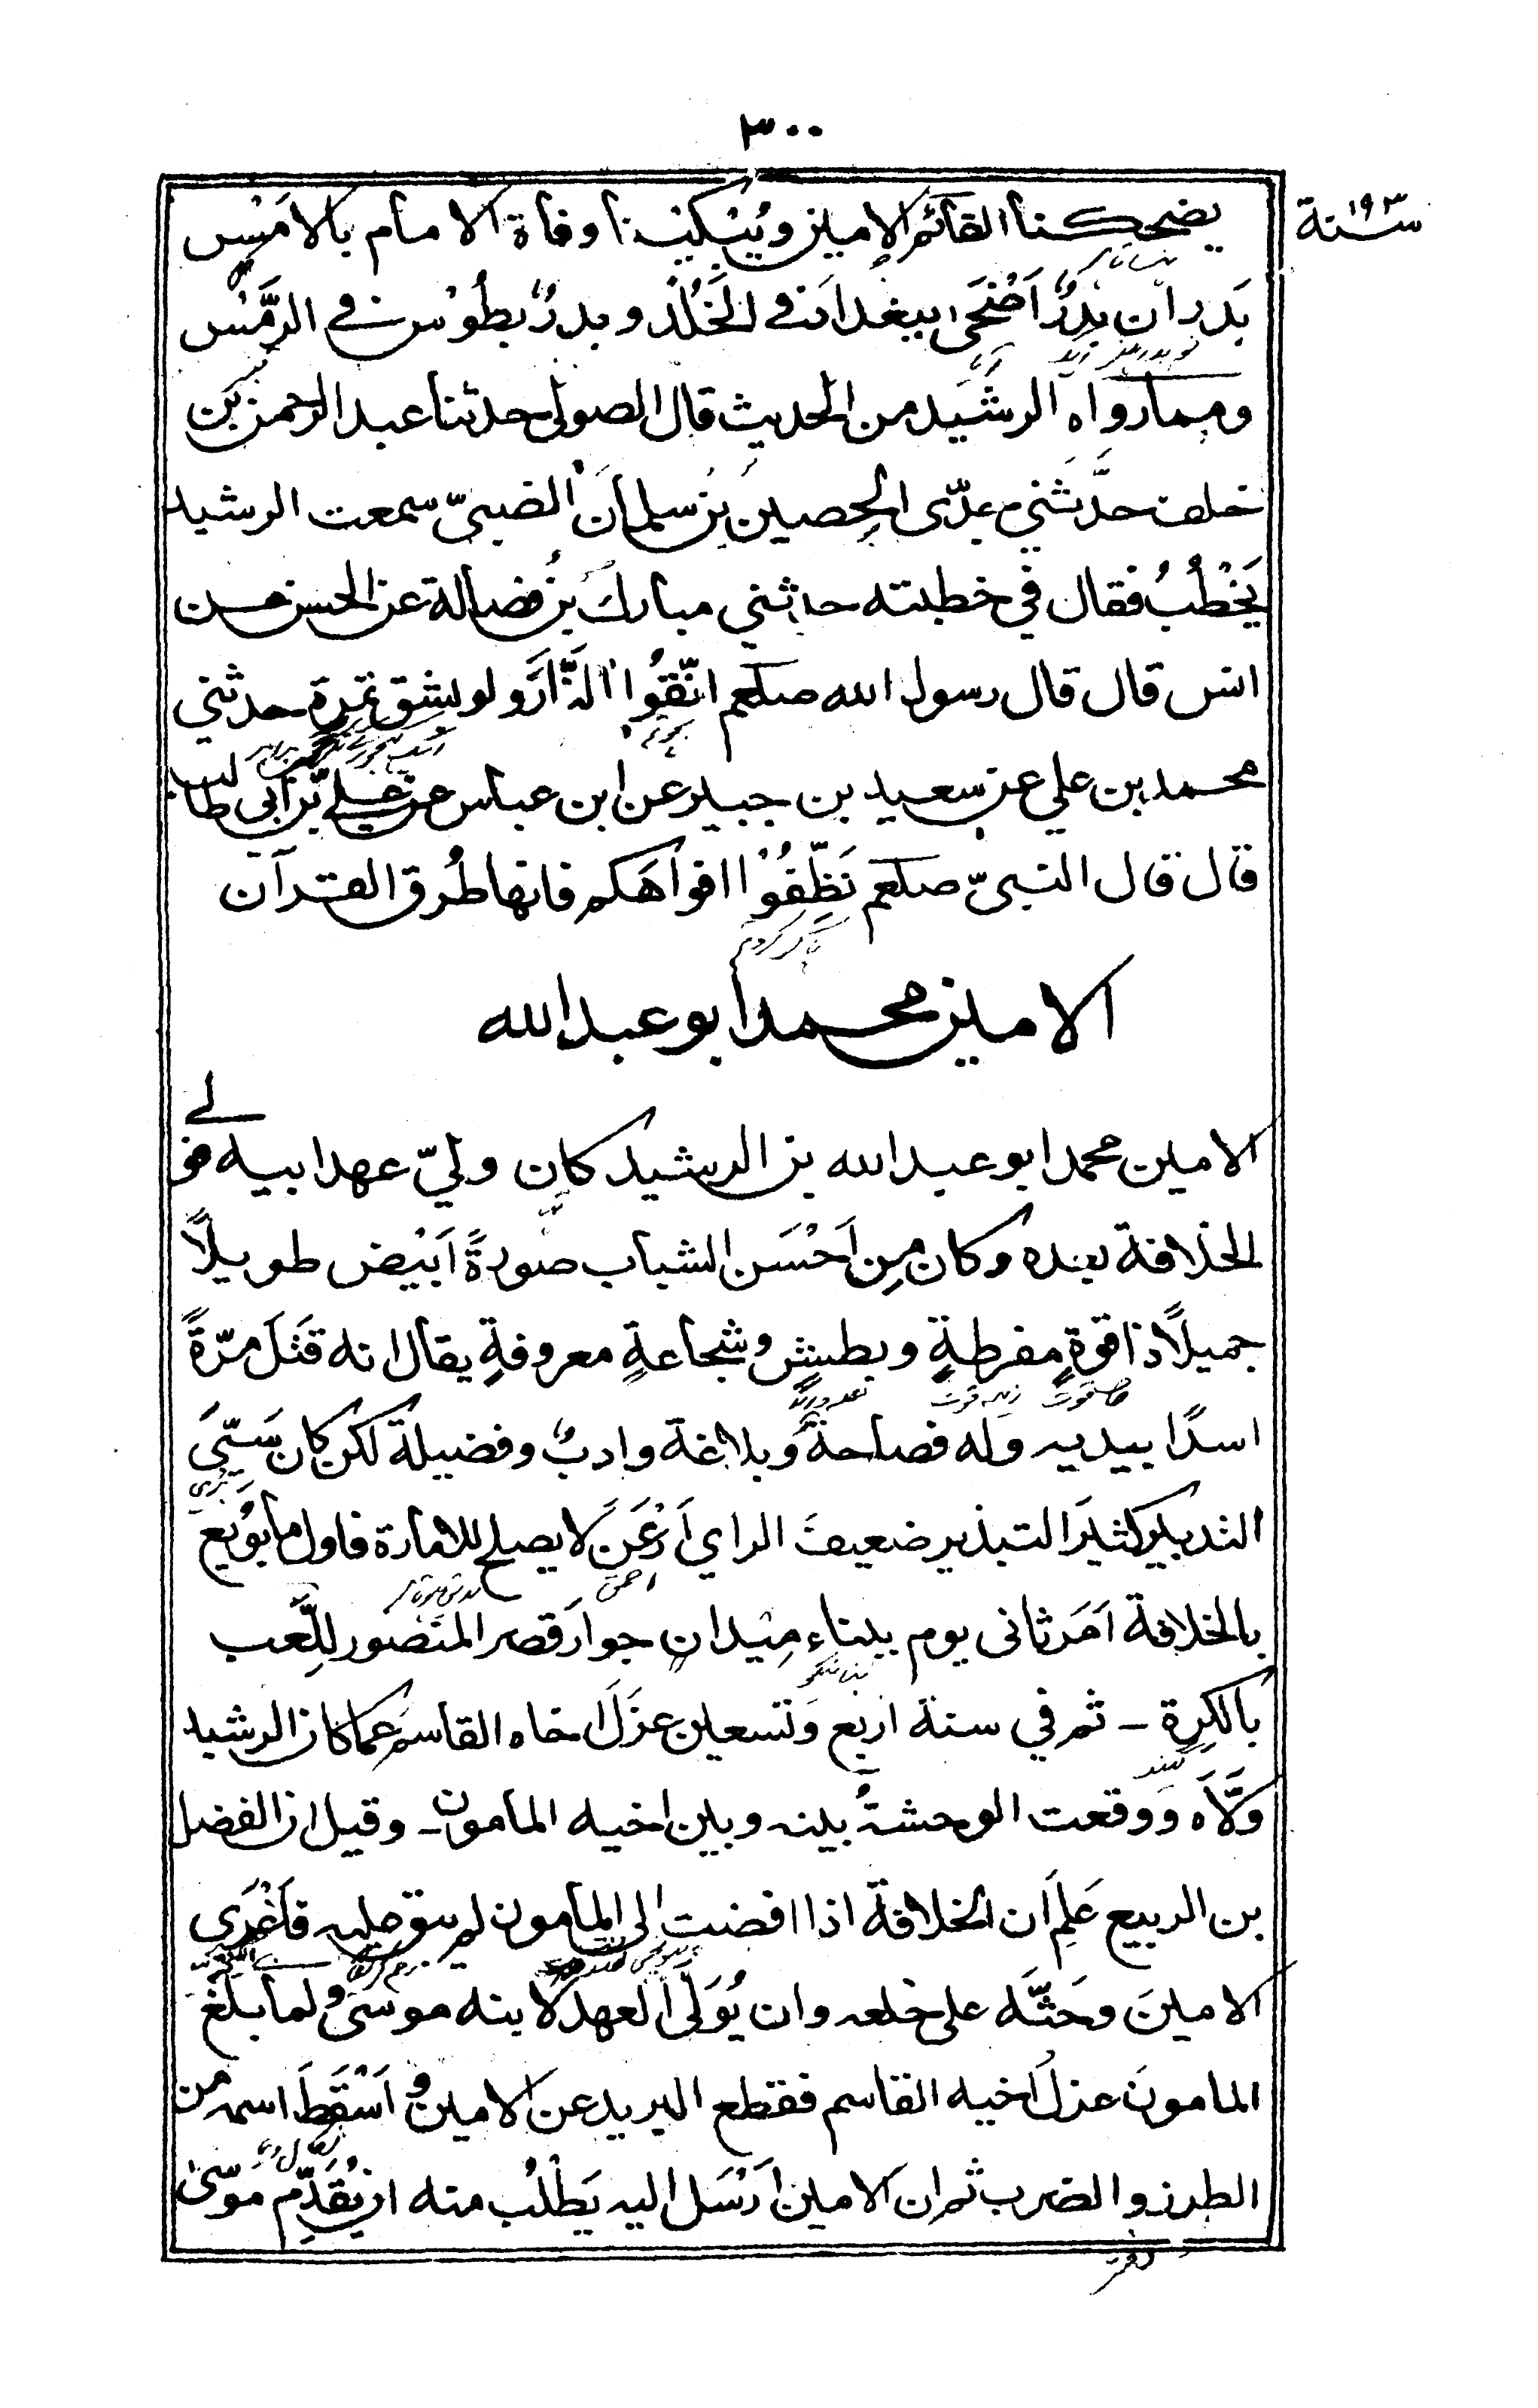 ٣٠٠
سنة ١٩٣
يضحكنا القائم الامين ويُبْكينا وفاة الامام بالامْس
بَدران بدرٌ اَضْحَى ببغداد فى الخُلْد وبدرٌ بطُوْس فى الرَّمْس
ومما رواه الرشيد من الحديث قال الصولى حدثنا عبد الرحمن بن
خلف حدَّثنى جدّى الحصين بن سلمان الضبىّ سمعت الرشيد
يَخْطُبُ فقال في خطبته حدثنى مبارك بن فضالة عن الحسن عن
انس قال قال رسول الله صلعم اتّقُوا النَّارَ ولو بشق تمرة حدثني
محمد بن علي عن سعيد بن جبير عن ابن عباس عن علي بن ابي طالب
قال قال النبىّ صلعم نَظِّفُوْا افواهَكم فانها طُرق القرآن
پاک کردم
الامين محمد ابو عبد الله
الامين محمد ابو عبد الله بن الرشيد كان وليّ عهد ابيه فولي
الخلافة بعده وكان مِن اَحْسَن الشباب صورةً اَبْيَض طويلاً
جميلاً ذا قوةٍ مفرطةٍ وبطشٍ وشجاعةٍ معروفةٍ يقال انه قَتَلَ مرّةً
اسدًا بيديه وله فصاحةٌ وبلاغة وادبٌ وفضيلة لكن كان سَيّئَ
التدبير كثيرَ التبذير ضعيفَ الراي اَرْعَنَ لا يصلح للامارة فاول ما بُوْيع
احمق
بالخلافة اَمَرَ ثانى يوم ببناء مِيْدان جوارَ قصر المنصور لِلَّعب
بالكرة - ثم في سنة اربع وتسعين عزَلَ اخاه القاسم عما كان الرشيد
گیند
ولَّاه ووقعت الوحشةُ بينه وبين اخيه المامون - وقيل ان الفضل
بن الربيع عَلِمَ ان الخلافة اذا افضت الى المامون لم يبق عليه فاَغْرَى
الامينَ وحَثَّه على خلعه وان يُوَلّى العهد لابنه موسى ولما بلَغَ
المامونَ عزلُ اخيه القاسم فقطع البريد عن الامين واَسْقَطَ اسمه من
الطرز والضرب ثم ان الامين اَرْسَل اليه يَطْلُب منه ان يُقَدِّم موسىٰ